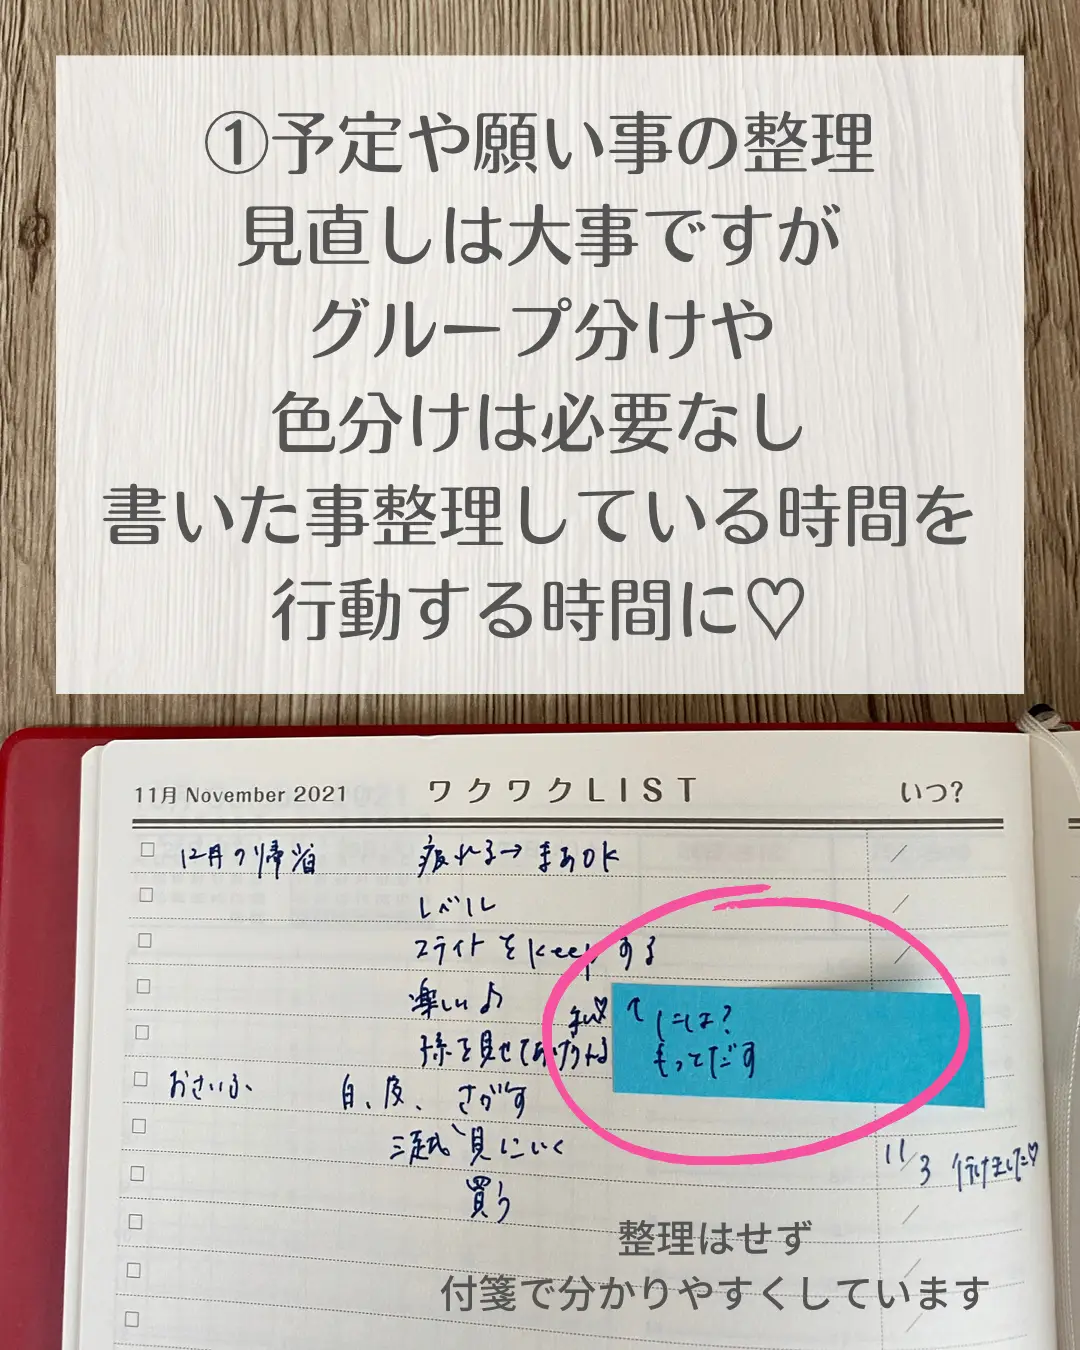 ①予定や願い事の整理
見直しは大事ですが
グループ分けや
色分けは必要なし
書いた事整理している時間を
行動する時間に♡
11月 November 2021 ワクワクLIST いつ?
12月の帰省 疲れる→まあOK
レベル
フライトをkeepする
楽しい♪
孫を見せてあげ
には?
もってだす
おさいふ 自、皮、さがす
見にいく 11/3 行けました♡
買う
整理はせず
付箋で分かりやすくしています